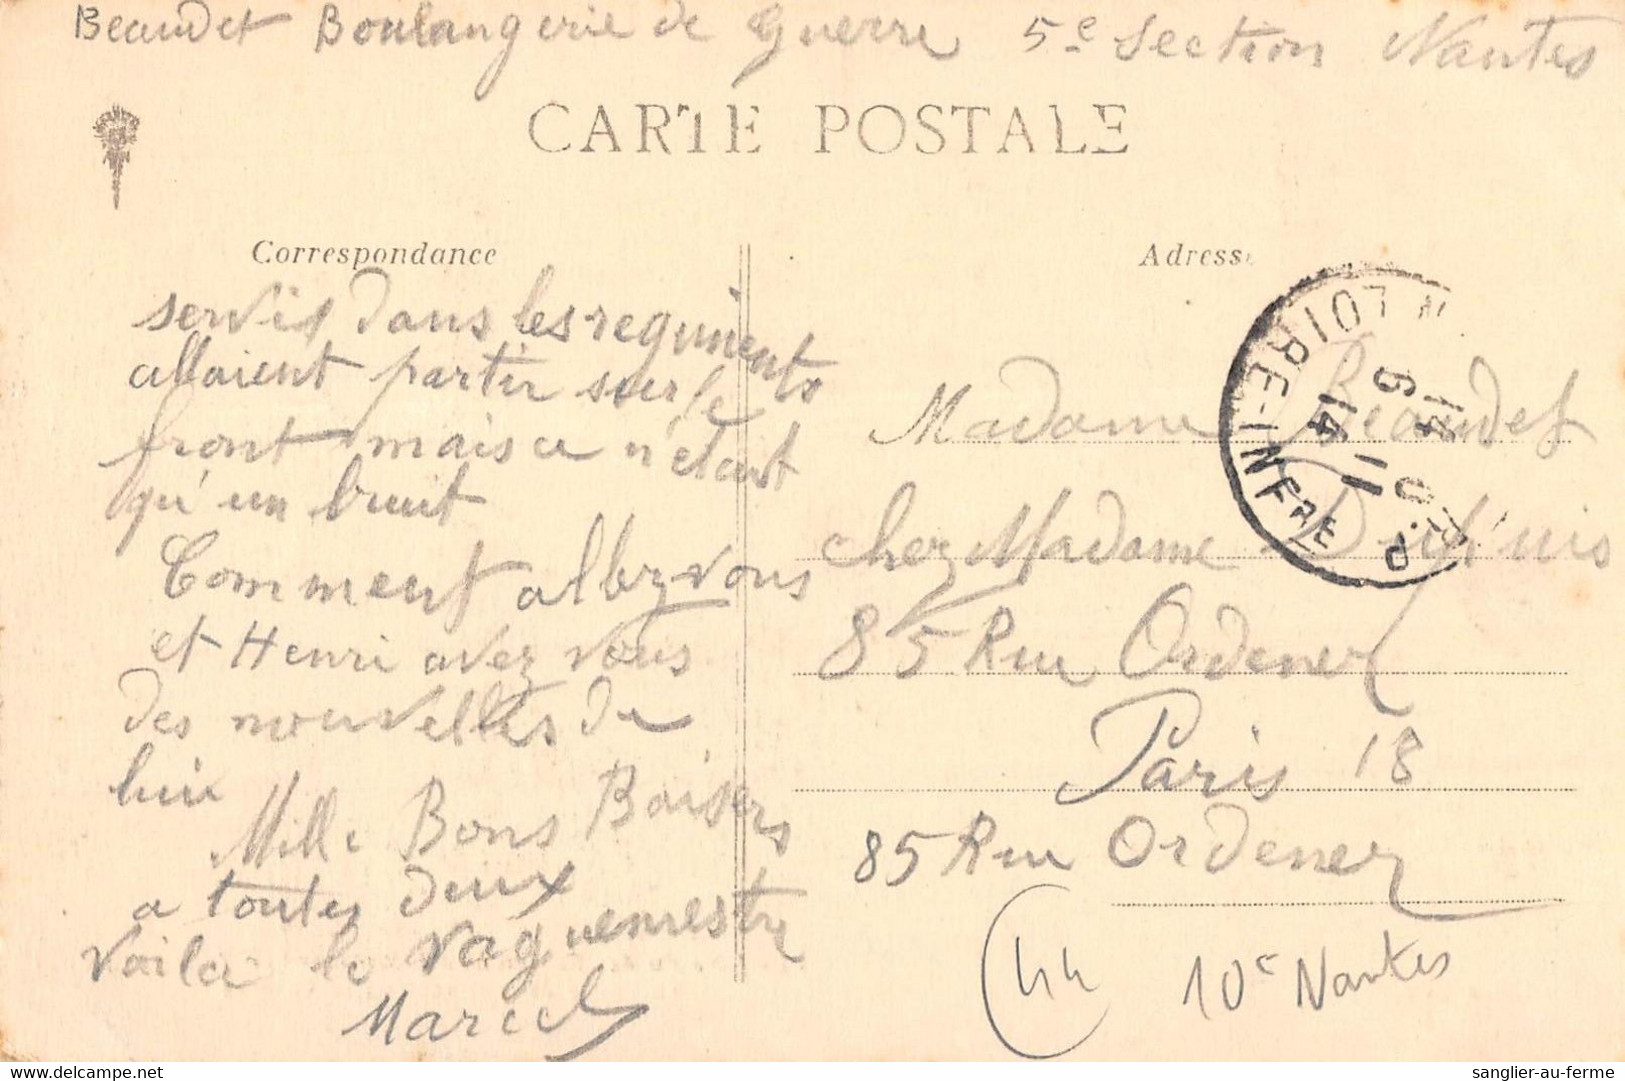 Beaudet Boulangerie de Guerre 5e Section Nantes
CARTE POSTALE
Correspondance
servis dans les regiments
allaient partir sur le
front mais ce n'etant
qu'un bruit
Comment allez vous
et Henri avez vous
des nouvelles de
lui
Mille Bons Baisers
a toutes deux
voila le vaguemestre
Marcel
Adresse
LOIRE-INFRE
14 11
6 14
Madame Beaudet
chez Madame
85 Rue Ordener
Paris 18
85 Rue Ordener
44
10e Nantes
delcampe.net
sanglier-au-ferme